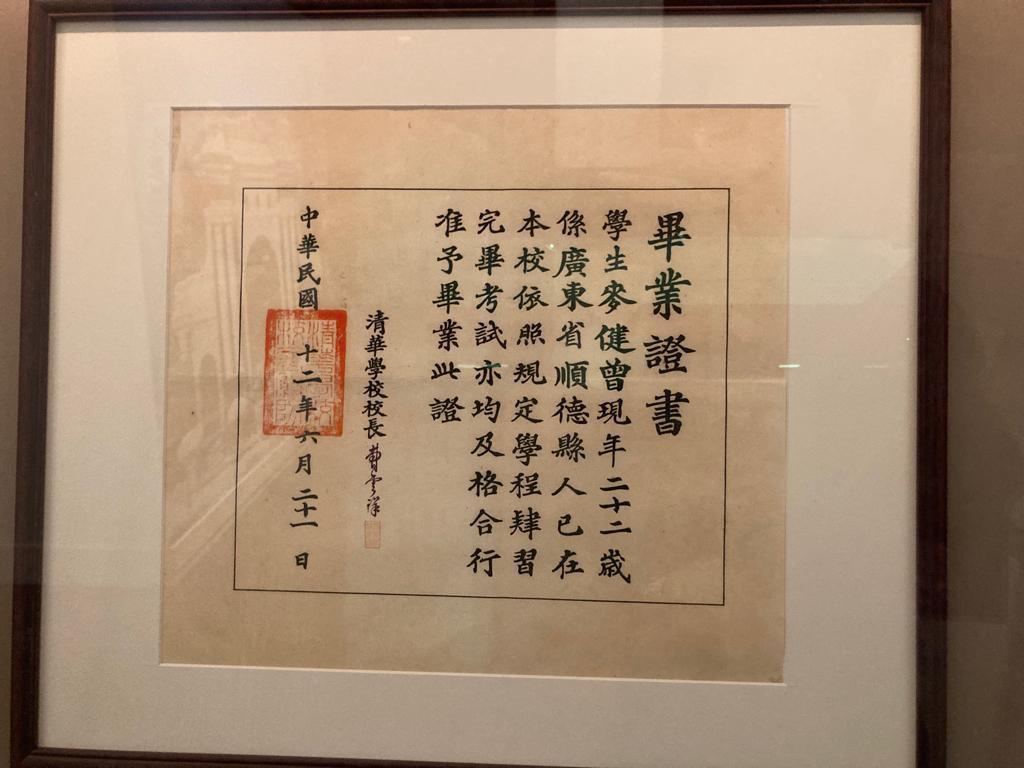 畢業證書
學生麥健曾現年二十二歲
係廣東省順德縣人已在
本校依照規定學程肄習
完畢考試亦均及格合行
准予畢業此證
清華學校校長曹雲祥
中華民國十二年六月二十一日